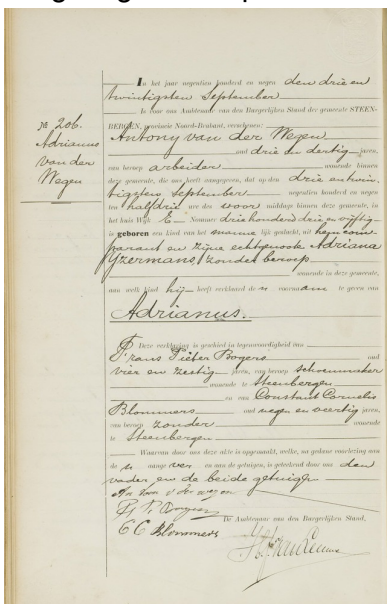 No 206.
Adrianus
van der
Wegen
In het jaar negentien honderd en negen den drie en
twintigsten September
is voor ons Ambtenaar van den Burgerlijken Stand der gemeente STEEN-
BERGEN, provincie Noord-Brabant, verschenen:
Antony van der Wegen
oud drie en dertig jaren,
van beroep arbeider wonende binnen
deze gemeente, die ons heeft aangegeven, dat op den drie en twin-
tigsten September negentien honderd en negen
ten half drie ure des voor middags binnen deze gemeente, in
het huis Wijk E Nommer driehonderd drie en vijftig
is geboren een kind van het mannelijk geslacht, uit hem com-
parant en zijne echtgenoote Adriana
IJzermans, zonder beroep
wonende in deze gemeente,
aan welk kind hij heeft verklaard de n voornaam te geven van
Adrianus.
Deze verklaring is geschied in tegenwoordigheid van
Frans Pieter Bogers oud
vier en zestig jaren, van beroep schoenmaker
wonende te Steenbergen
en van Constant Cornelis
Blommers oud negen en veertig jaren,
van beroep zonder wonende
te Steenbergen
Waarvan door ons deze akte is opgemaakt, welke, na gedane voorlezing aan
de n aangever en aan de getuigen, is geteekend door ons den
vader en de beide getuigen
v der wegen
Bogers
De Ambtenaar van den Burgerlijken Stand,
C C Blommers